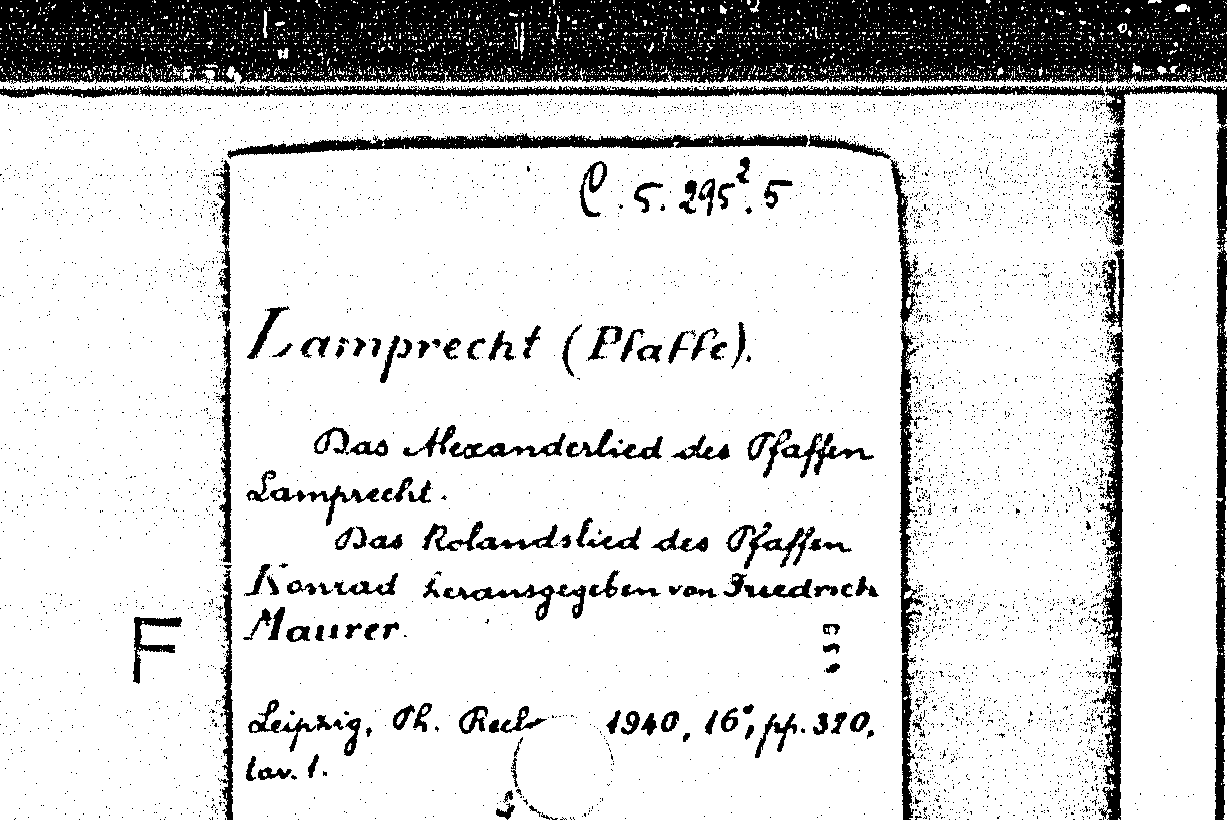 C. 5. 295². 5
Lamprecht (Pfaffe).
Das Alexanderlied des Pfaffen
Lamprecht.
Das Rolandslied des Pfaffen
Konrad herausgegeben von Friedrich
Maurer.
F
Leipzig, Ph. 1940, 16°, pp. 320,
tav. 1.